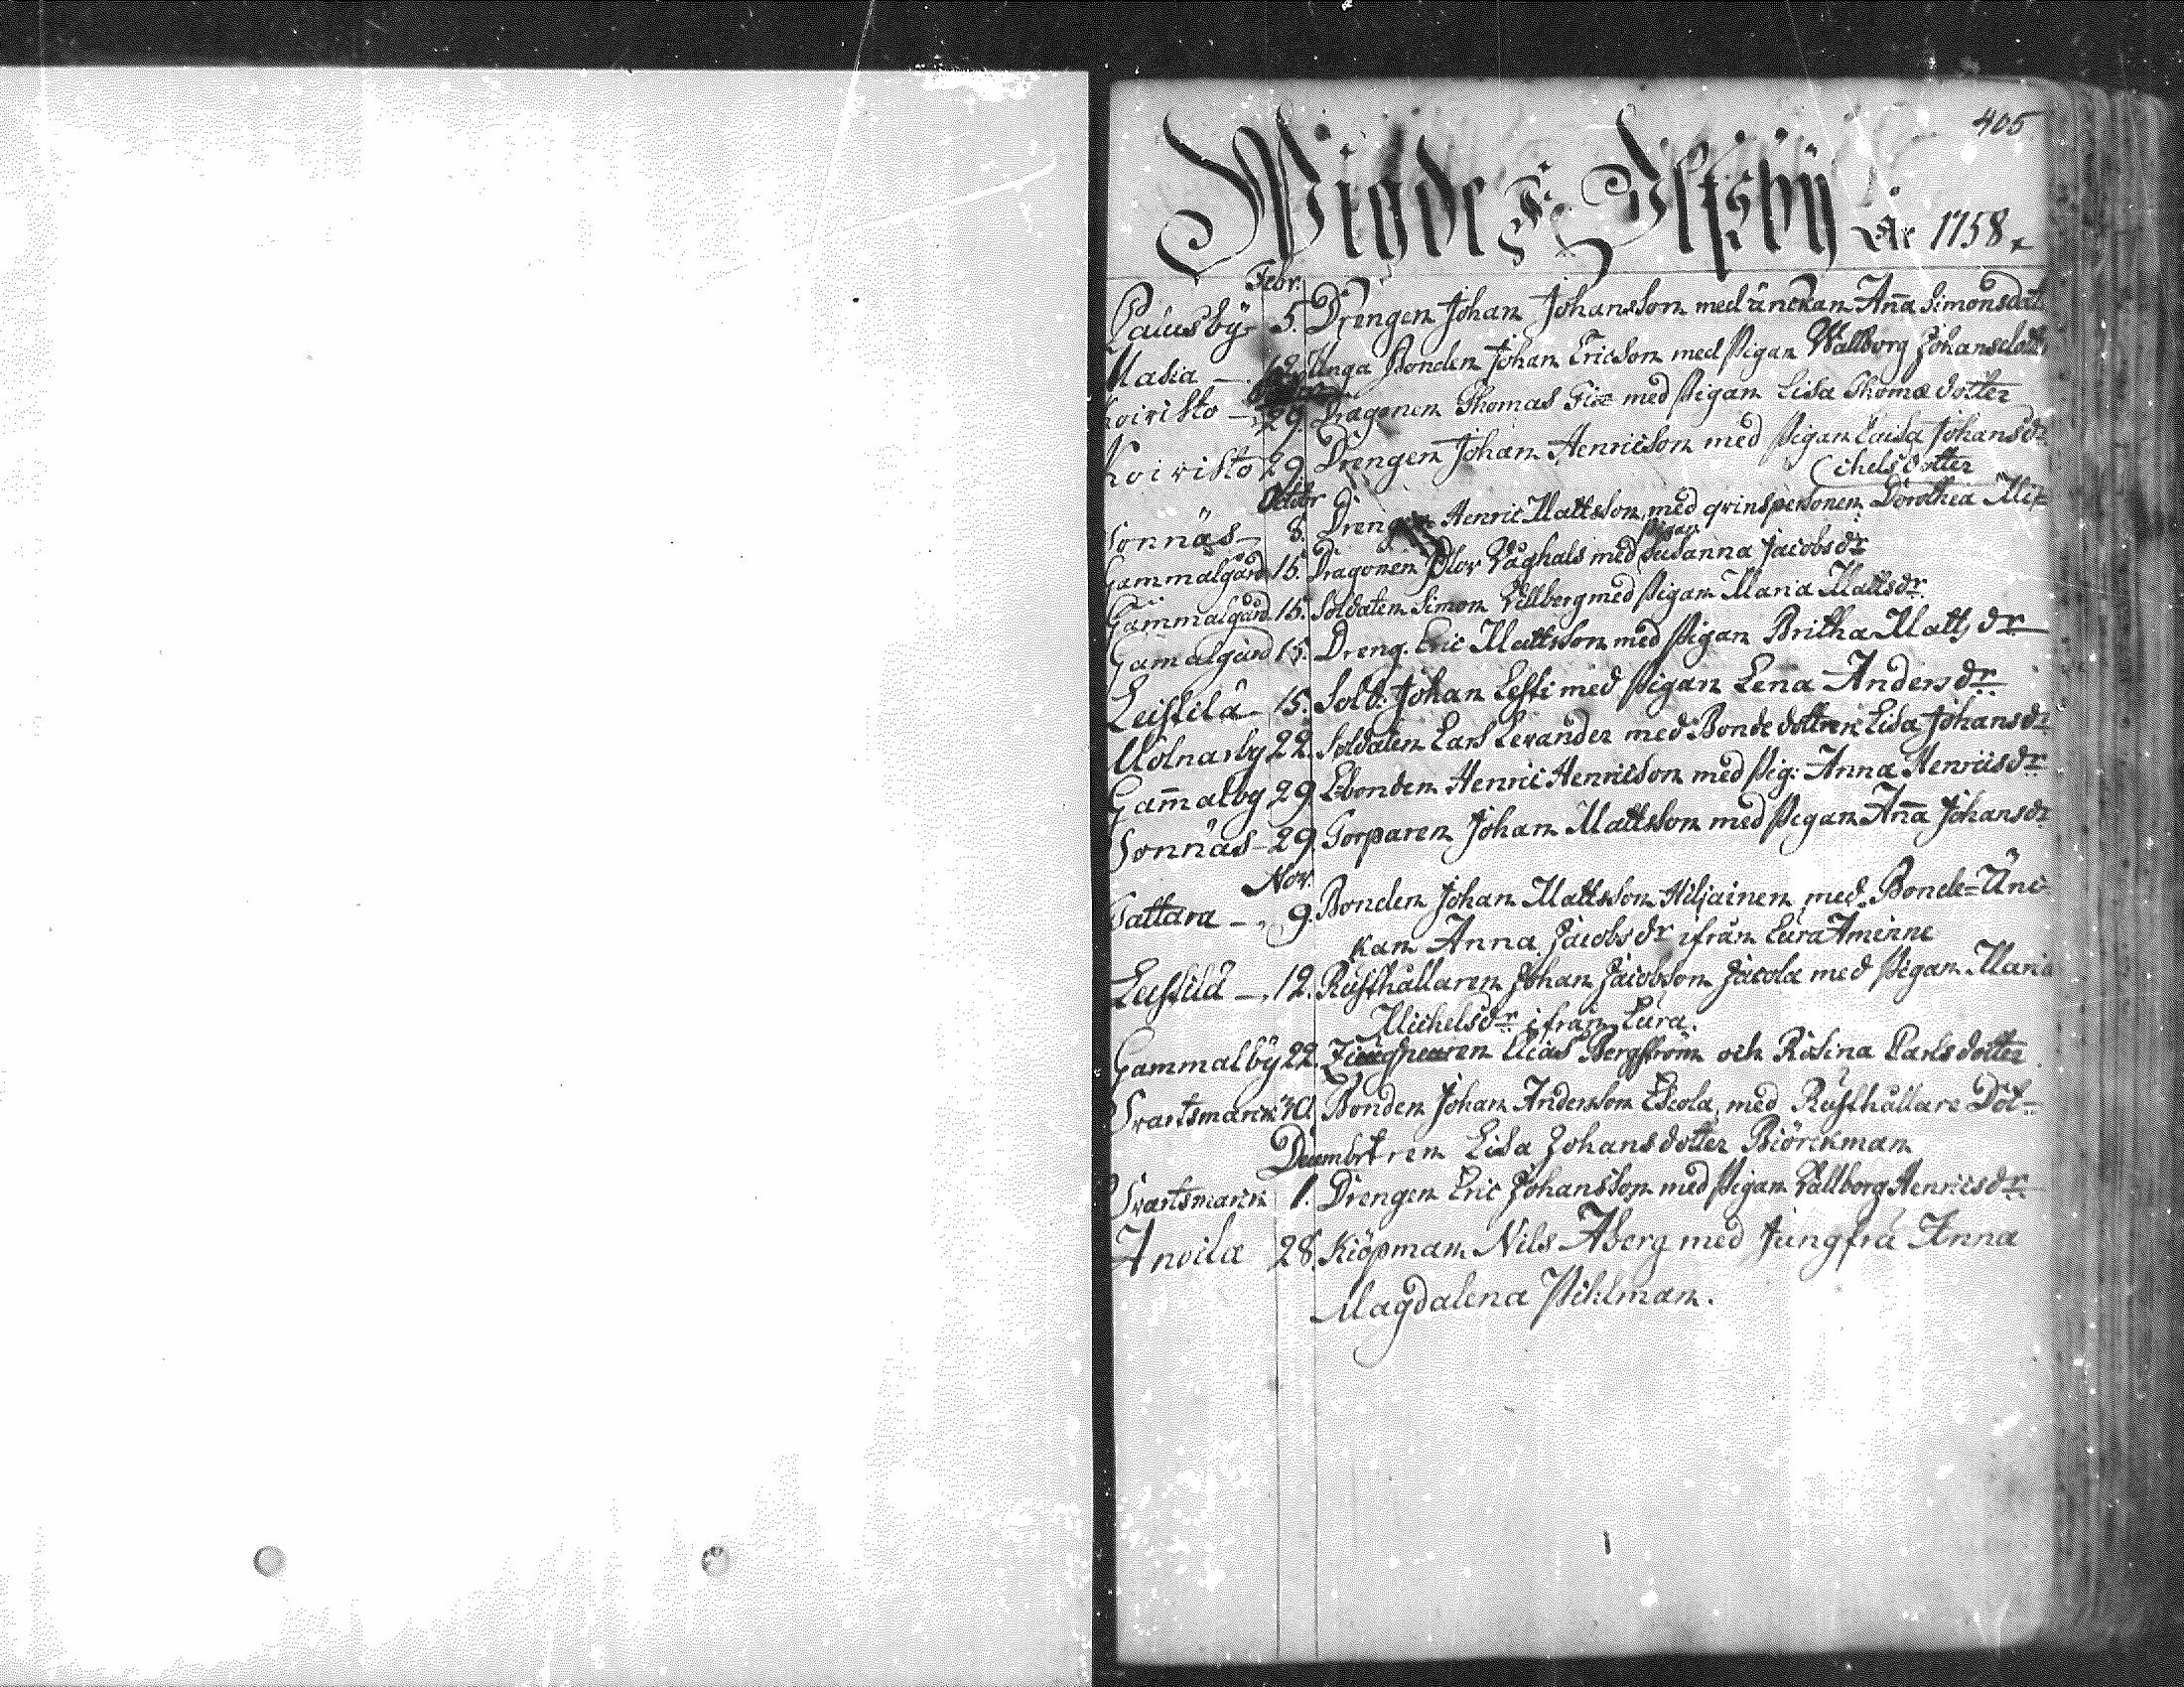 405
Wigde i Ulfsby År 1758.
Febr.
Pausby 5. Drengen Johan Johansson med änckan Aña Simonsdat
Masia — 12 Unga Bonden Johan Ericsson med Pigan Wallborg Johansdott
oivisto — 29. Dragonen Thomas Fix med Pigan Lisa Thomædotter
Koivisto 29 Drengen Johan Henricsson med Pigan Caisa Johansdr
(chelsdotter
Octobr
Sonnäs 8. Drengen Henric Mattsson med qvinspersonen Dorothea Mi=
Pigan
Gammalgård 15. Dragonen Olov Våghals med Susanna Jacobsdr
Gammalgård 15. Soldaten Simon Villberg med Pigan Maria Mattsdr.
Gamalgård 15. Dreng. Eric Mattsson med Pigan Britha Mattsdr
Leistilä 15. Sold. Johan Lesti med Pigan Lena Andersdr.
Molnarby 22. Soldaten Lars Levander med Bonde dottren Lisa Johansdr
Gam̄alby 29 Ebonden Henric Henricson med Pig. Anna Henricsdr
Sonnäs 29 Torparen Johan Mattsson med Pigan Aña Johansdr
Nov.
Tattara — 9. Bonden Johan Mattsson Hiljainen med Bonde=Änc
kan Anna Jacobsdr ifrån Eura Aminne
Leistilä —, 12. Rusthållaren Johan Jacobsson Jacola med Pigan Maria
Michelsdr ifrån Eura.
Gammalby 22. Elias Bergström och Risina Carlsdotter
Svartsmarck 30 Bonden Johan Andersson Escola med Rusthållare Dot=
Decembr tren Lisa Johansdotter Biörckman
Svartsmarck 1. Drengen Eric Johansson med Pigan Vallborg Henricsdr
Anoila 28. Kiöpman Nils Åberg med Jungfru Anna
Magdalena Pihlman.